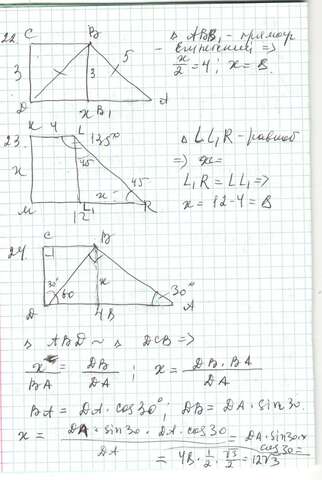 22. C B
3 3 5
D x B₁ A
△ ABB₁ - прямоуг
- египетский =>
x/2 = 4; x = 8.
23. K 4 L 135°
x 45
x 45
M L₁ R
12
△ LL₁R - равноб
=> x =
L₁R = LL₁ =>
x = 12 - 4 = 8
24. C B
30° x 30°
D 60 48 A
△ ABD ~ △ DCB =>
x/BA = DB/DA ; x = DB · BA/DA
BA = DA · cos 30°; DB = DA · sin 30.
x = DA · sin 30 · DA · cos 30/DA = DA · sin 30 · cos 30 =
= 48 · 1/2 · √3/2 = 12√3